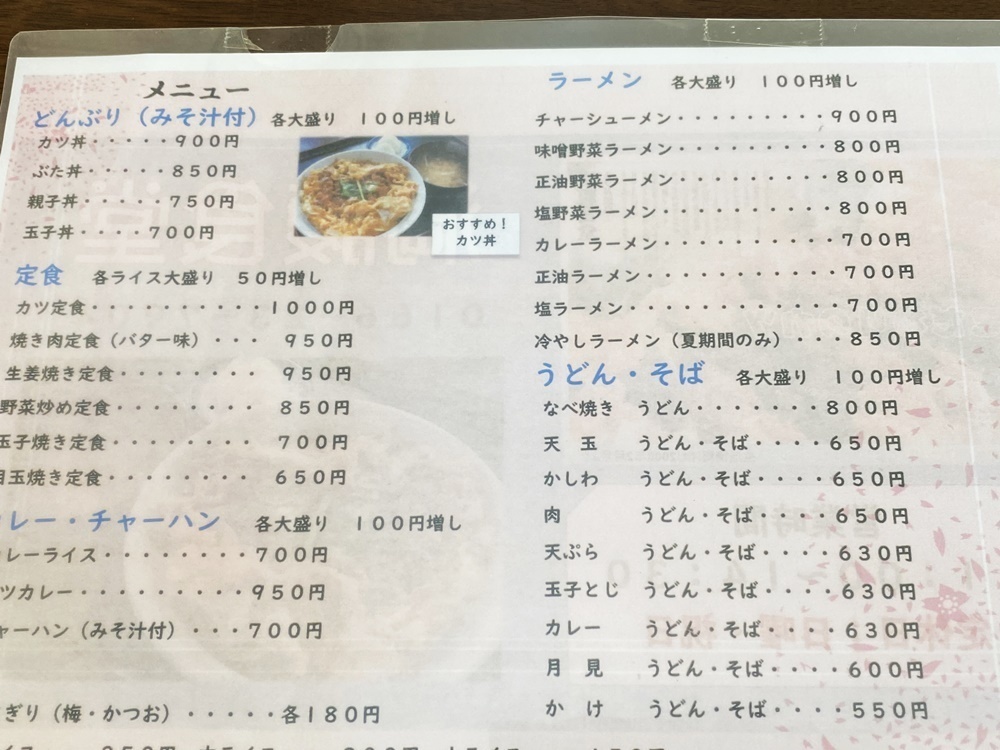 メニュー
どんぶり（みそ汁付） 各大盛り １００円増し
カツ丼・・・・・９００円
ぶた丼・・・・・８５０円
親子丼・・・・・７５０円
玉子丼・・・・７００円
おすすめ！
カツ丼
定食 各ライス大盛り ５０円増し
カツ定食・・・・・・・・・・１０００円
焼き肉定食（バター味）・・・ ９５０円
生姜焼き定食・・・・・・・・ ９５０円
野菜炒め定食・・・・・・・・ ８５０円
玉子焼き定食・・・・・・・・ ７００円
目玉焼き定食・・・・・・・・ ６５０円
レー・チャーハン 各大盛り １００円増し
レーライス・・・・・・・・７００円
ツカレー・・・・・・・・・９５０円
ャーハン（みそ汁付）・・・７００円
ぎり（梅・かつお）・・・・・各１８０円
ラーメン 各大盛り １００円増し
チャーシューメン・・・・・・・・・９００円
味噌野菜ラーメン・・・・・・・・・８００円
正油野菜ラーメン・・・・・・・・・８００円
塩野菜ラーメン・・・・・・・・・・８００円
カレーラーメン・・・・・・・・・・７００円
正油ラーメン・・・・・・・・・・・７００円
塩ラーメン・・・・・・・・・・・・７００円
冷やしラーメン（夏期間のみ）・・・８５０円
うどん・そば 各大盛り １００円増し
なべ焼き うどん・・・・・・・８００円
天 玉 うどん・そば・・・・６５０円
かしわ うどん・そば・・・・６５０円
肉 うどん・そば・・・・６５０円
天ぷら うどん・そば・・・・６３０円
玉子とじ うどん・そば・・・・６３０円
カレー うどん・そば・・・・６３０円
月 見 うどん・そば・・・・６００円
か け うどん・そば・・・・５５０円